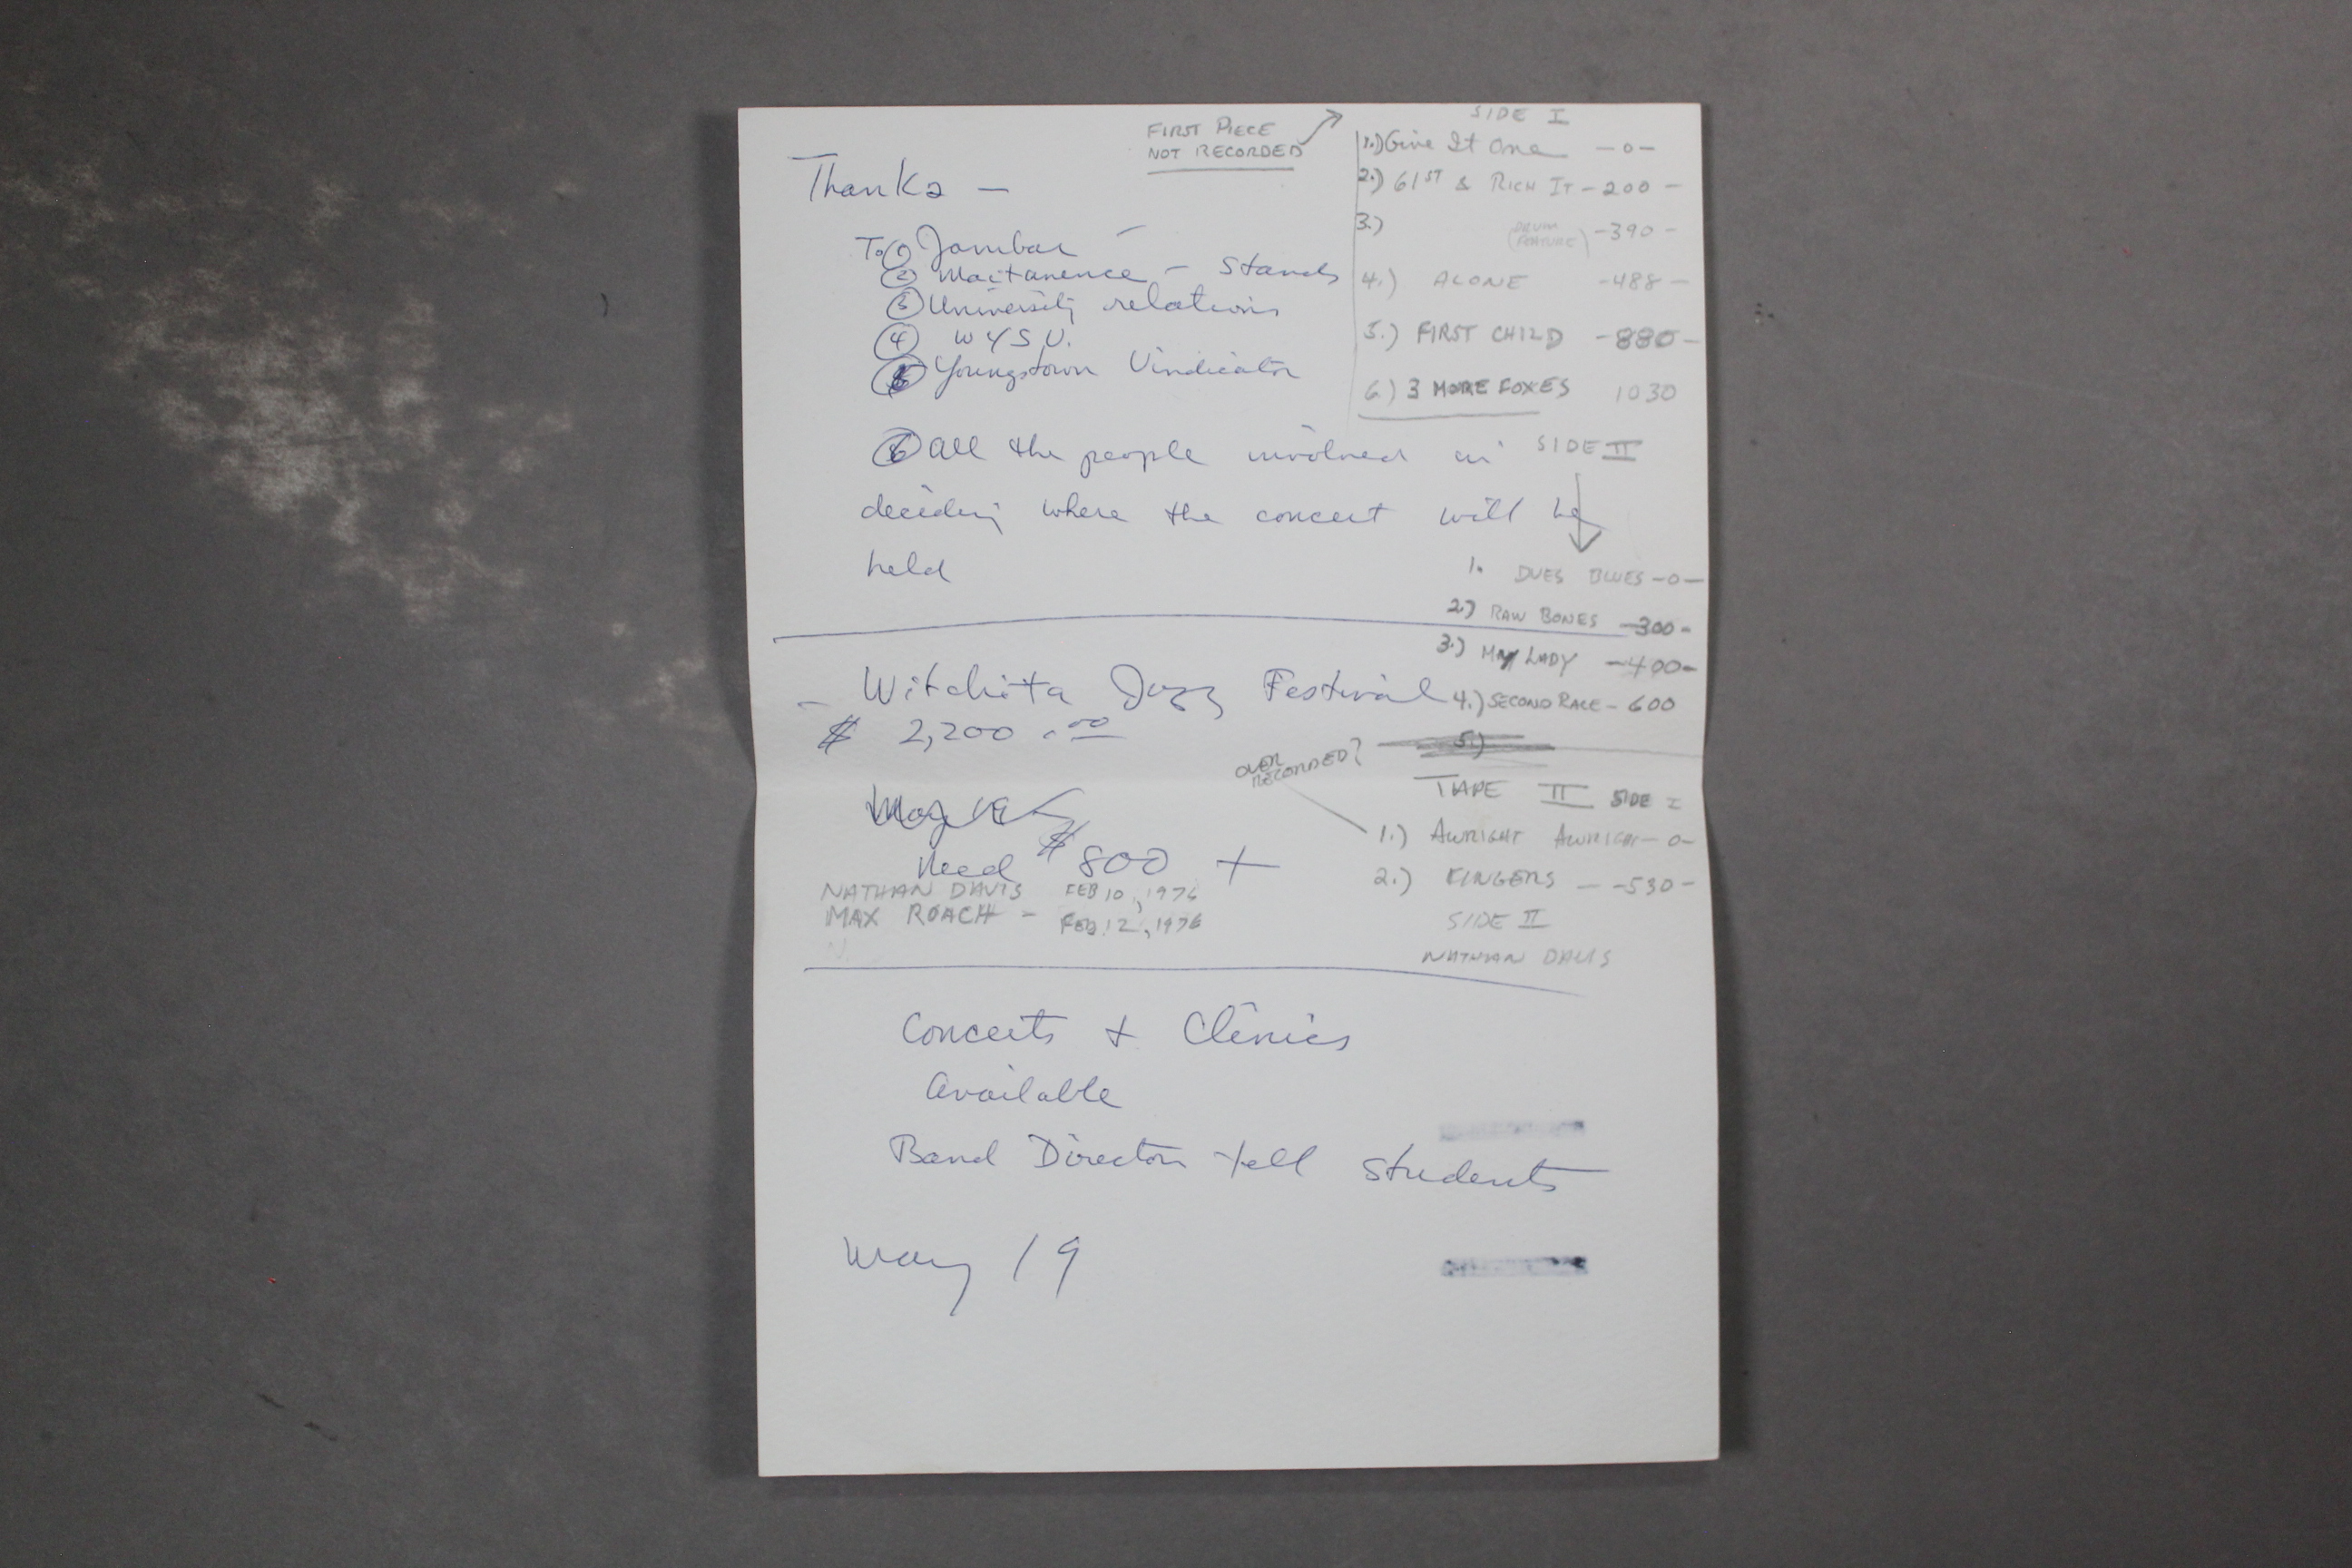 Thanks —
To ① Jambar —
② Maitanence – Stands
③ University relations
④ WYSU.
⑤ Youngstown Vindicator
⑥ all the people involved in
deciding where the concert will be
held
– Witchita Jazz Festival
$ 2,200.00
Need $800 +
NATHAN DAVIS FEB 10, 1976
MAX ROACH – FEB 12, 1976
Concerts + Clinics
Available
Band Directors tell students
May 19
FIRST PIECE
NOT RECORDED
SIDE I
1.) Give It One —0—
2.) 61ST & RICH IT –200–
3.) (DRUM FEATURE) –390–
4.) ALONE –488–
5.) FIRST CHILD –880–
6.) 3 MORE FOXES 1030
SIDE II
1. DUES BLUES –0–
2.) RAW BONES –300–
3.) MY LADY –400–
4.) SECOND RACE – 600
5.)
OVER
RECORDED?
TAPE II SIDE I
1.) AWRIGHT AWRIGHT –0–
2.) FINGERS — –530–
SIDE II
NATHAN DAVIS